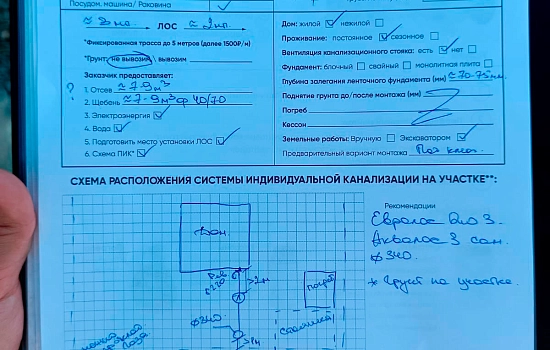 Посудом. машина/ Раковина
ЛОС
*Фиксированная трасса до 5 метров (далее 1500₽/м)
*Грунт: не вывозим \ вывозим
Заказчик предоставляет:
? 1. Отсев ≈ 7-9 м³
2. Щебень ≈ 7-9 м³ ф 40/70
3. Электроэнергия
4. Вода
5. Подготовить место установки ЛОС
6. Схема ПИК*
Дом: жилой нежилой
Проживание: постоянное сезонное
Вентиляция канализационного стояка: есть нет
Фундамент: блочный свайный монолитная плита
Глубина залегания ленточного фундамента (мм) ≈ 70-75 мм
Поднятие грунта до/после монтажа (мм)
Погреб
Кессон
Земельные работы: Вручную Экскаватором
Предварительный вариант монтажа
СХЕМА РАСПОЛОЖЕНИЯ СИСТЕМЫ ИНДИВИДУАЛЬНОЙ КАНАЛИЗАЦИИ НА УЧАСТКЕ**:
Рекомендации
Евролос Био 3.
Аквалос 3 сам.
ф340.
* Грунт на участке.
Дом.
2м
погреб
ф340